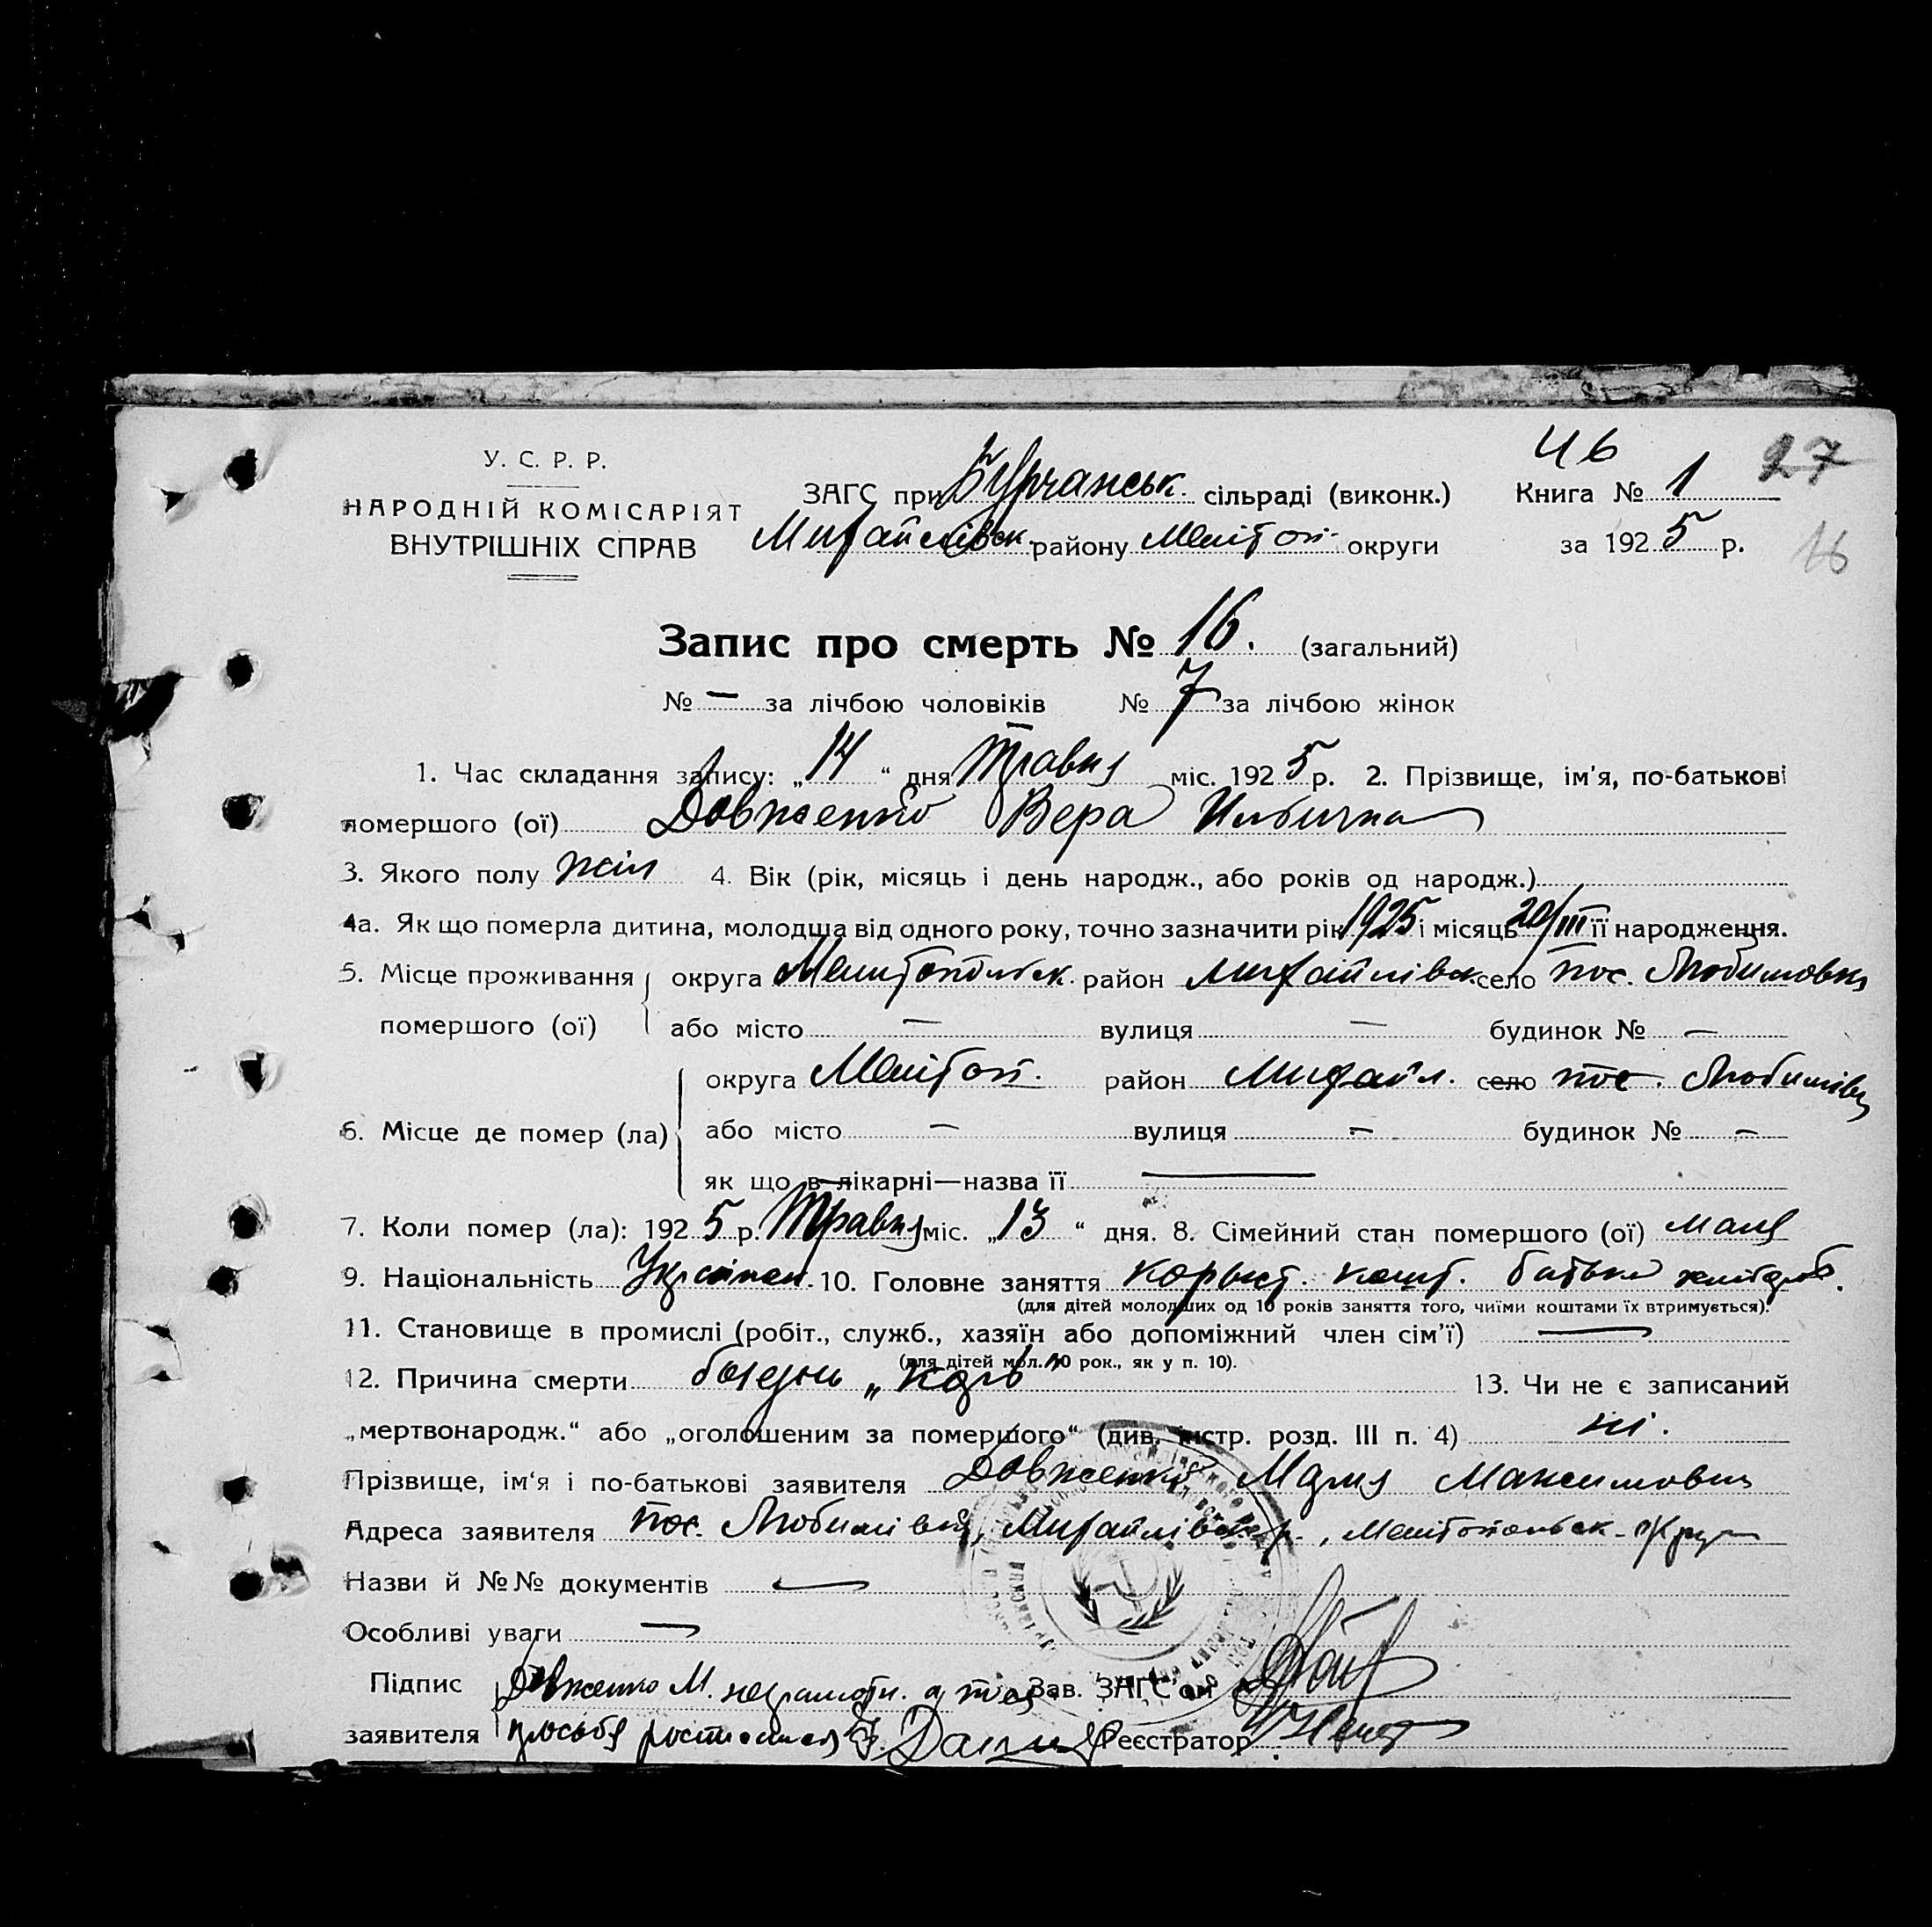 У. С. Р. Р.
НАРОДНІЙ КОМІСАРІЯТ
ВНУТРІШНІХ СПРАВ
ЗАГС при Бурчанськ. сільраді (виконк.)
Михайлівск. району Мелітоп. округи
46
27
Книга № 1
за 1925 р.
16
Запис про смерть № 16. (загальний)
№ — за лічбою чоловіків № 7 за лічбою жінок
1. Час складання запису: „14“ дня Травня міс. 1925 р. 2. Прізвище, ім'я, по-батькові
помершого (ої) Довженко Вера
3. Якого полу жін 4. Вік (рік, місяць і день народж., або років од народж.)
4а. Як що померла дитина, молодша від одного року, точно зазначити рік 1925 і місяць 20/III її народження.
5. Місце проживання округа Мелитопольск. район Михайлівск. село пос. Любимовка
помершого (ої) або місто — вулиця — будинок № —
округа Мелітоп. район Михайл. село пос. Любимівка
6. Місце де помер (ла) або місто — вулиця — будинок № —
як що в лікарні—назва її —
7. Коли помер (ла): 1925 р. Травня міс. „13“ дня. 8. Сімейний стан помершого (ої) мала
9. Національність 10. Головне заняття корыст. кошт. батька хлібороб.
(для дітей молодших од 10 років заняття того, чиїми коштами їх втримується).
11. Становище в промислі (робіт., служб., хазяїн або допоміжний член сім'ї) —
(для дітей мол. 10 рок., як у п. 10).
12. Причина смерти болезнь „корь“ 13. Чи не є записаний
„мертвонародж.“ або „оголошеним за помершого“ (див. інстр. розд. III п. 4) ні.
Прізвище, ім'я і по-батькові заявителя Довженко Мария Максимовна
Адреса заявителя пос. Любимівка, Михайлівск. р., Мелітопольск.
Назви й №№ документів —
Особливі уваги —
Підпис Довженко М. неграмотн. Зав. ЗАГС'ом
заявителя Реєстратор